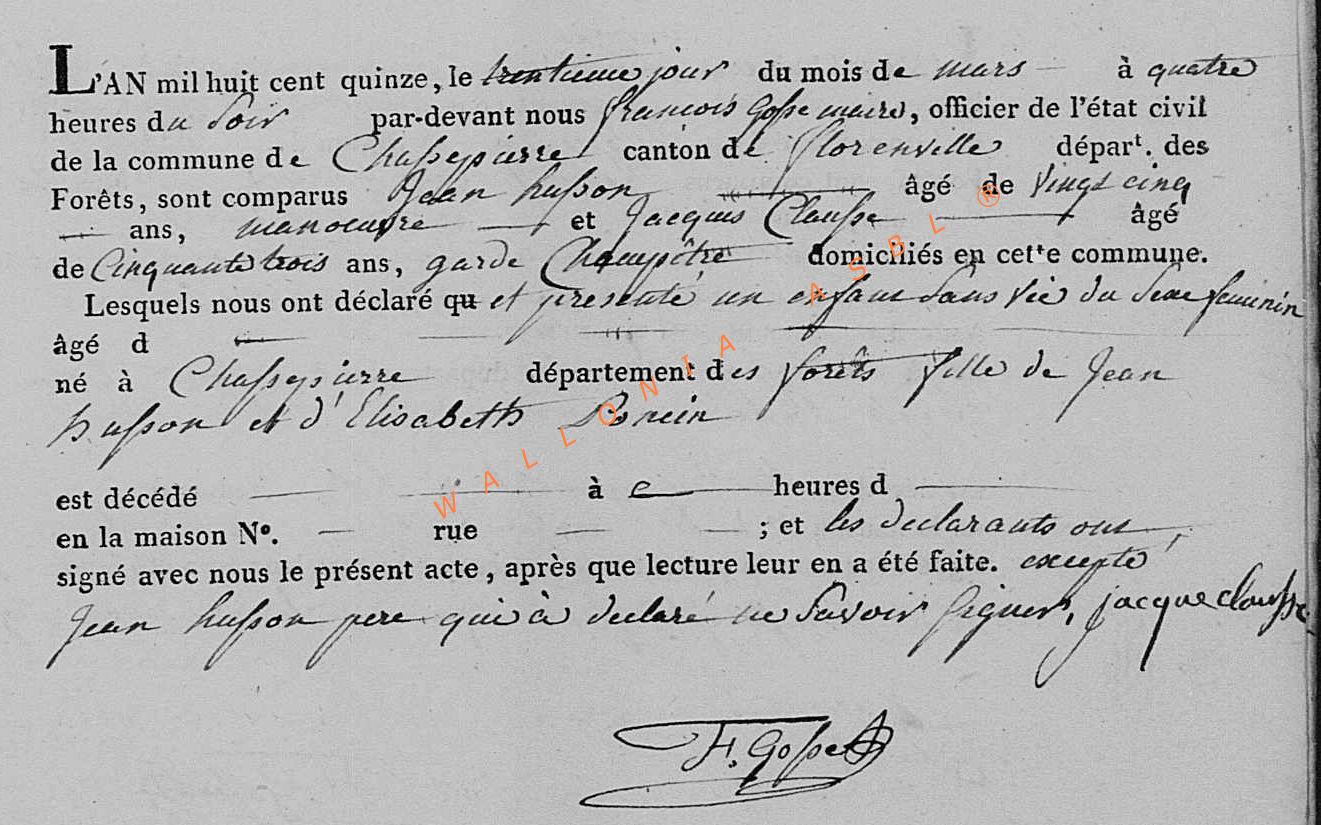 L'AN mil huit cent quinze, le trentieme jour du mois de mars à quatre
heures du soir par-devant nous francois Gosse maire, officier de l'état civil
de la commune de Chassepierre canton de florenville départ. des
Forêts, sont comparus Jean husson âgé de vingt cinq
ans, manoeuvre et Jacques Clausse âgé
de Cinquante trois ans, garde Champêtre domiciliés en cette commune.
Lesquels nous ont déclaré qu et presenté un enfant sans vie du sexe feminin
âgé d
né à Chassepierre département des forêts fille de Jean
husson et d'Elisabeth
est décédé à heures d
en la maison Nº. rue ; et les declarants ont
signé avec nous le présent acte, après que lecture leur en a été faite. excepté
Jean husson pere qui à declaré ne savoir signer, jacque clausse
F. Gosse
WALLONIA ASBL ®